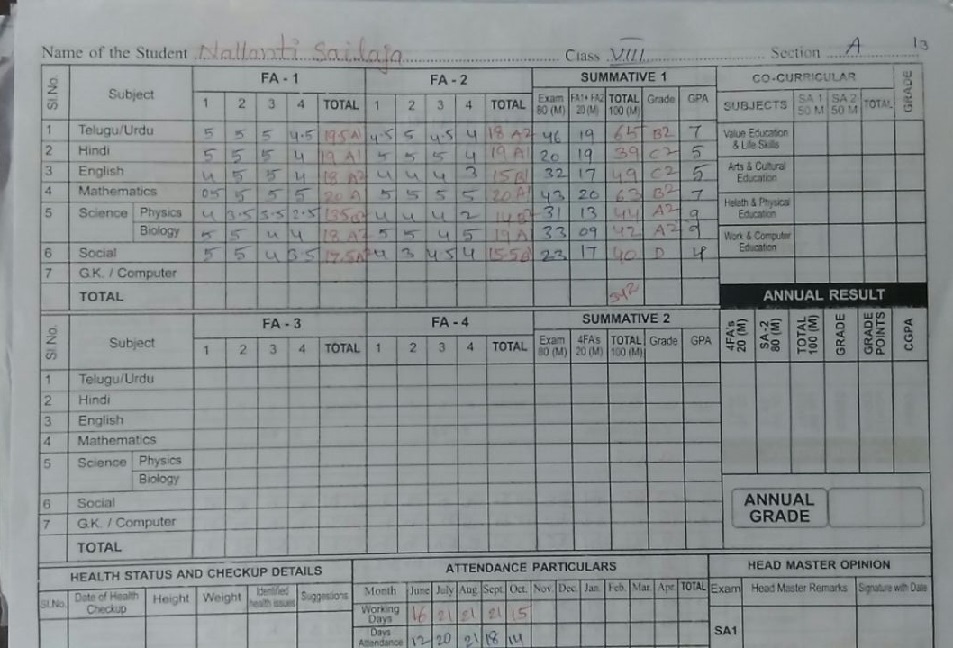 13
Name of the Student Nallanti Sailaja Class VIII Section A
Sl.No. Subject FA - 1 FA - 2 SUMMATIVE 1 CO-CURRICULAR GRADE
1 2 3 4 TOTAL 1 2 3 4 TOTAL Exam 80 (M) FA1+ FA2 20 (M) TOTAL 100 (M) Grade GPA SUBJECTS SA 1 50 M SA 2 50 M TOTAL
1 Telugu/Urdu 5 5 5 4.5 19.5 A1 4.5 5 4.5 4 18 A2 46 19 65 B2 7 Value Education & Life Skills
2 Hindi 5 5 5 4 19 A1 5 5 5 4 19 A1 20 19 39 C2 5
3 English 4 5 5 4 18 A2 4 4 4 3 15 B1 32 17 49 C2 5 Arts & Cultural Education
4 Mathematics 05 5 5 5 20 A 5 5 5 5 20 A1 43 20 63 B2 7
5 Science Physics 4 3.5 3.5 2.5 13.5 4 4 4 2 14 31 13 44 A2 9 Helath & Physical Education
Biology 5 5 4 4 18 A2 5 5 4 5 19 A 33 09 42 A2 9 Work & Computer Education
6 Social 5 5 4 3.5 17.5 A 4 3 4.5 4 15.5 23 17 40 D 4
7 G.K. / Computer
TOTAL 342 ANNUAL RESULT
Sl.No. Subject FA - 3 FA - 4 SUMMATIVE 2 4FA's 20 (M) SA-2 80 (M) TOTAL 100 (M) GRADE GRADE POINTS CGPA
1 2 3 4 TOTAL 1 2 3 4 TOTAL Exam 80 (M) 4FAs 20 (M) TOTAL 100 (M) Grade GPA
1 Telugu/Urdu
2 Hindi
3 English
4 Mathematics
5 Science Physics
Biology
6 Social
7 G.K. / Computer
TOTAL
ANNUAL GRADE
HEALTH STATUS AND CHECKUP DETAILS ATTENDANCE PARTICULARS HEAD MASTER OPINION
Sl.No. Date of Health Checkup Height Weight Identified health issues Suggestions Month June July Aug. Sept. Oct. Nov. Dec. Jan. Feb. Mar. Apr. TOTAL Exam Head Master Remarks Signature with Date
Working Days 16 21 21 21 15
Days Attendance 12 20 21 18 14 SA1